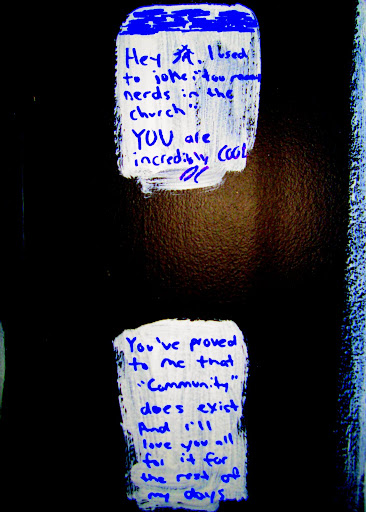 Hey 쟈. I used
to joke "too many
nerds in the
church"
YOU are
incredibly COOL
You've proved
to me that
"Community"
does exist
And I'll
love you all
for it for
the rest of
my days